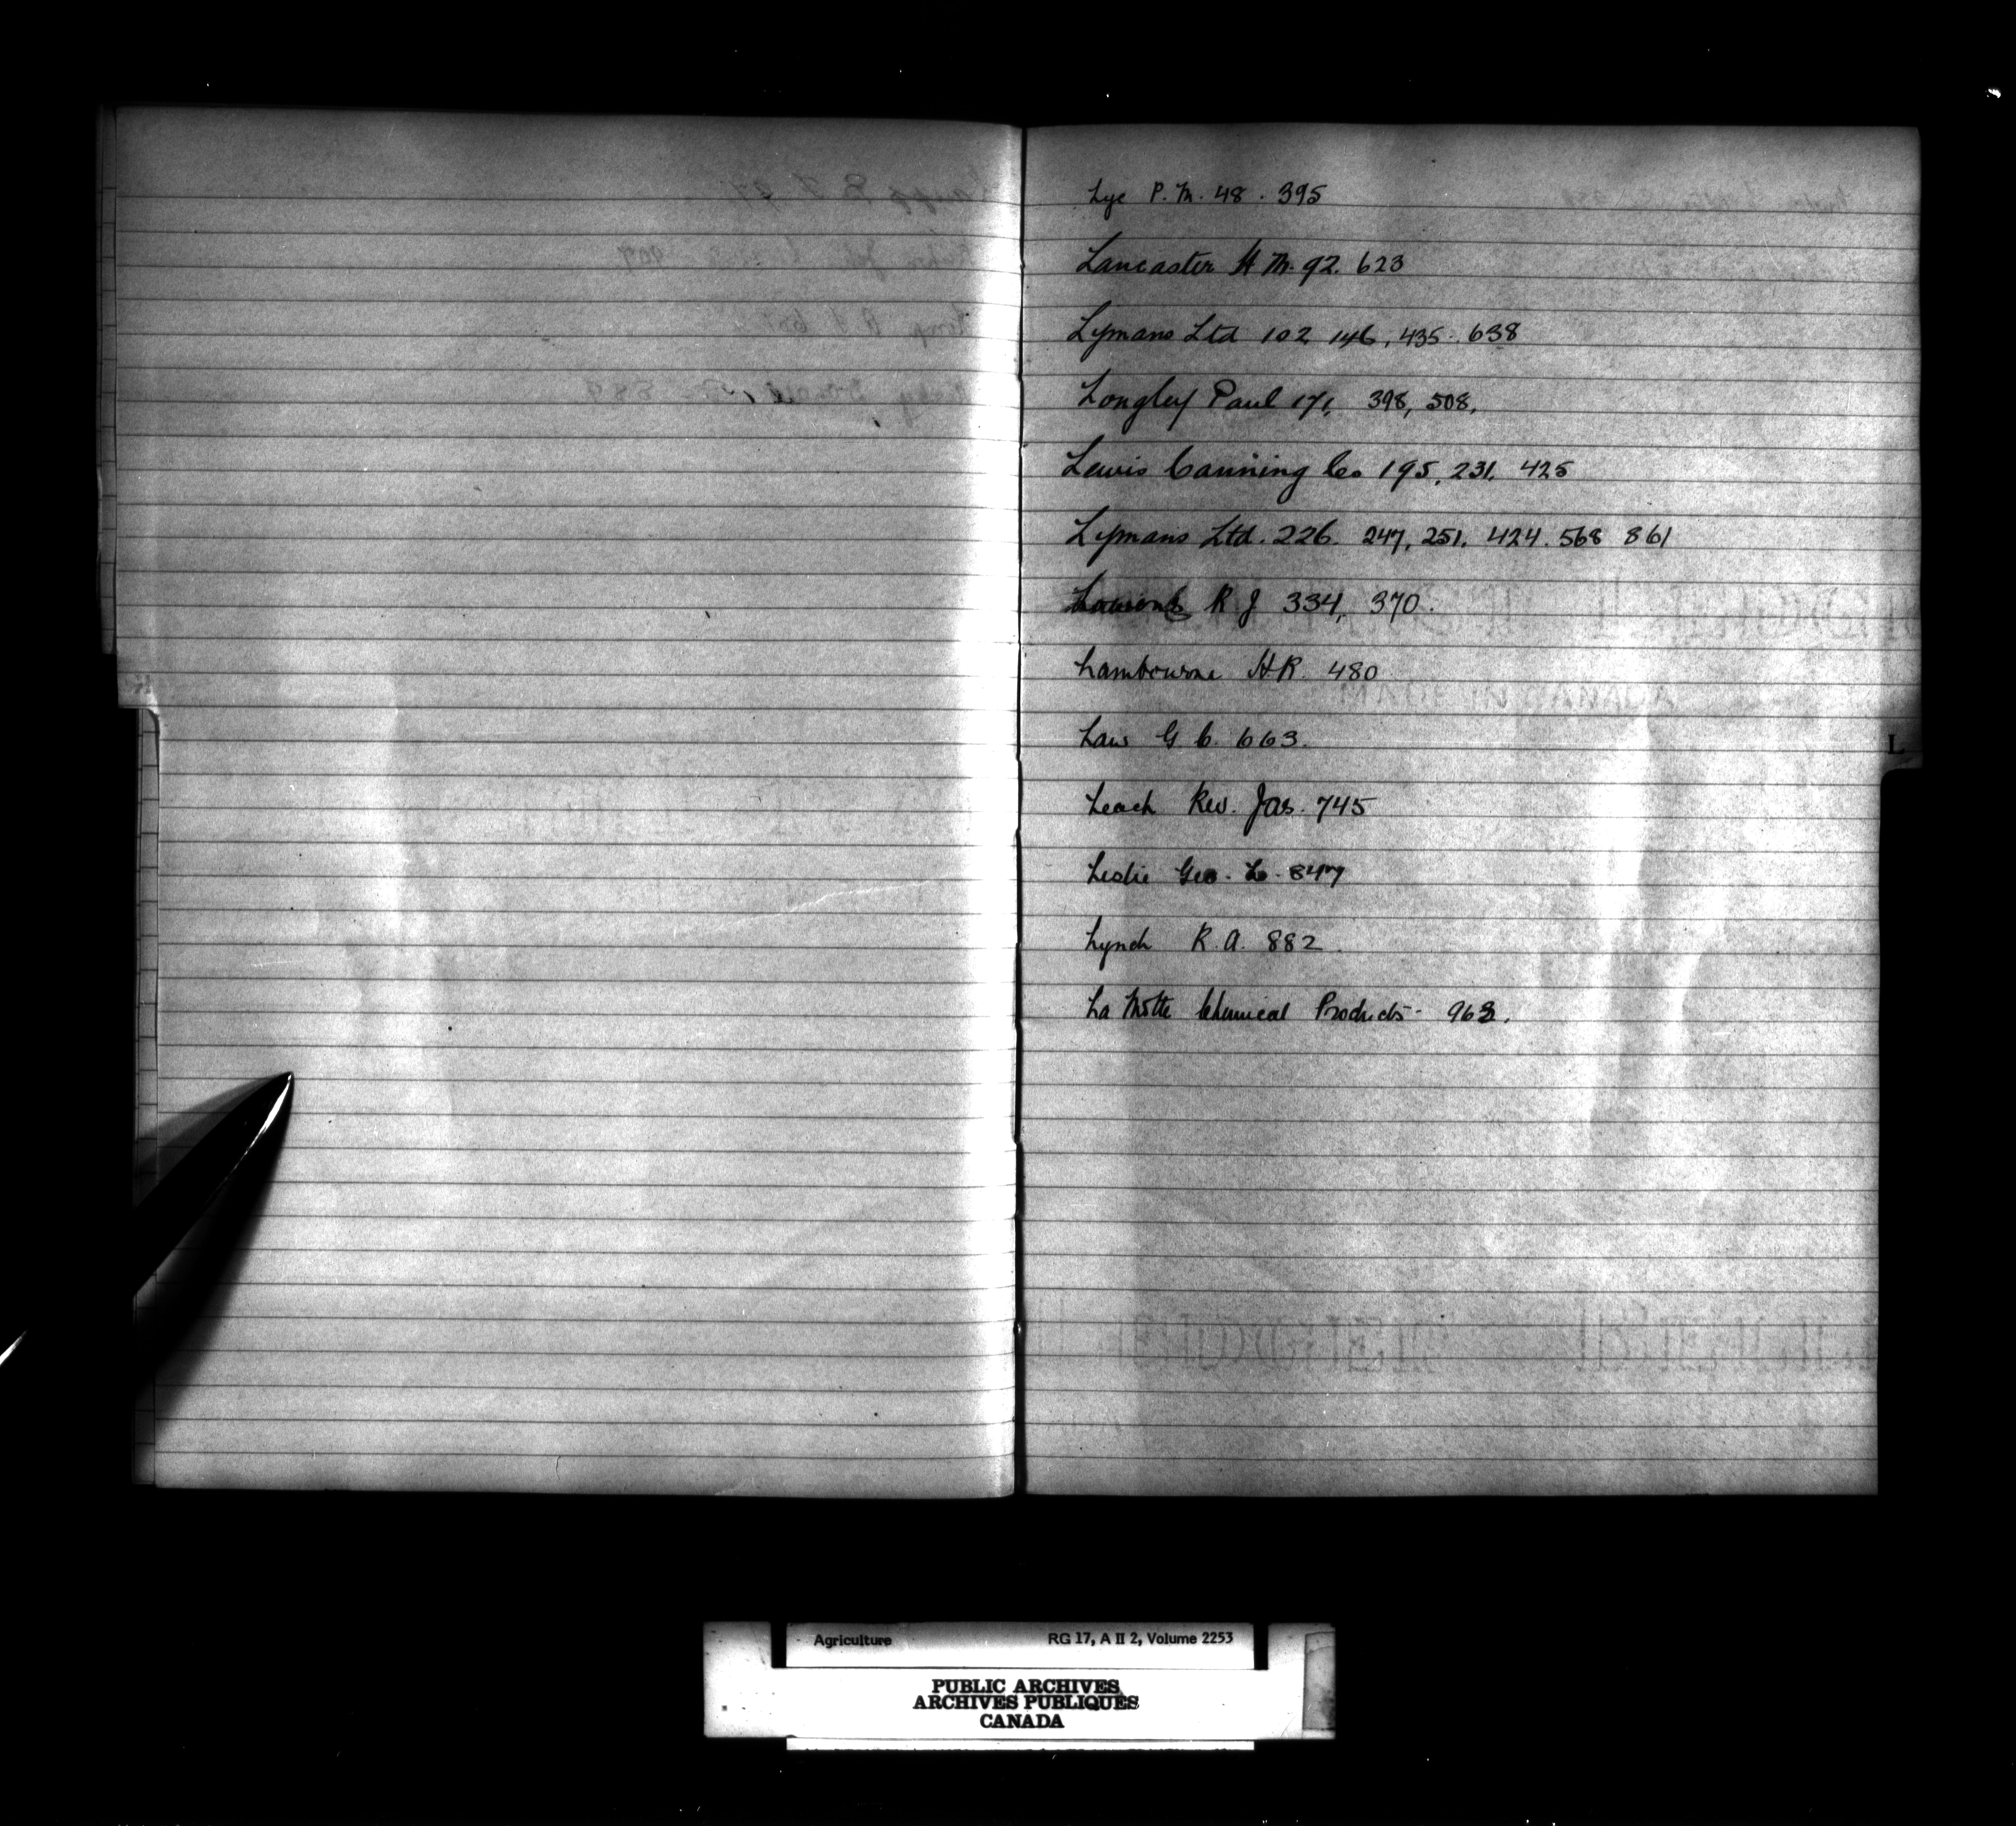 Lye P. M. 48. 395
Lancaster H M. 92. 623
Lymans Ltd 102 146, 435. 638
Longley Paul 171, 398, 508,
Lewis Canning Co 195, 231, 425
Lymans Ltd. 226. 247, 251, 424. 568 861
R J 334, 370.
Lambourne H R. 480
Law G. C. 663.
Leach Rev. Jas. 745
Leslie Geo. L. 847
Lynch R. A. 882
La Motte Chemical Products - 963.
L
Agriculture RG 17, A II 2, Volume 2253
PUBLIC ARCHIVES
ARCHIVES PUBLIQUES
CANADA